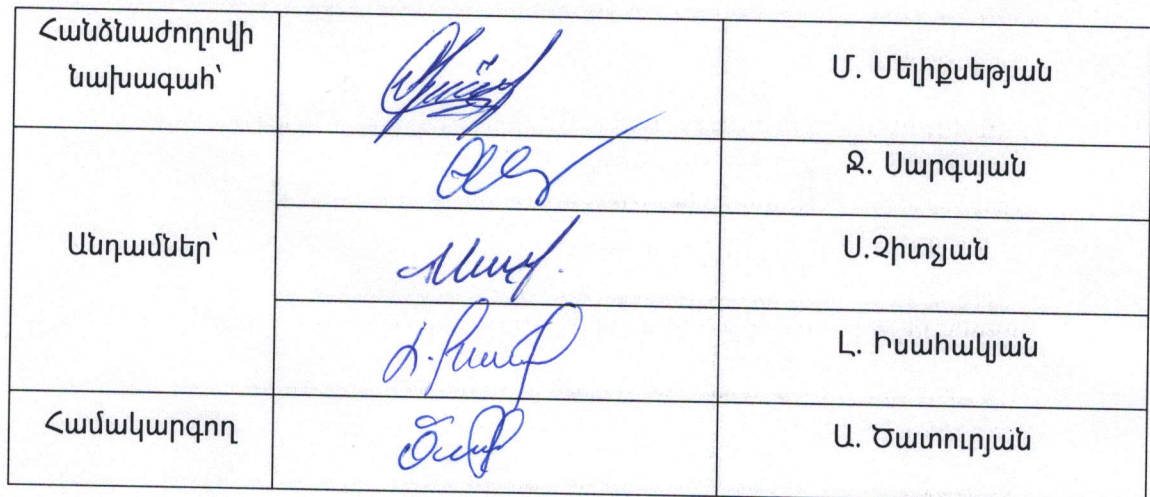 Հանձնաժողովի
նախագահ՝
Մ. Մելիքսեթյան
Ջ. Սարգսյան
Անդամներ՝
Ս.Չիտչյան
Լ. Իսահակյան
Համակարգող
Ա. Ծատուրյան